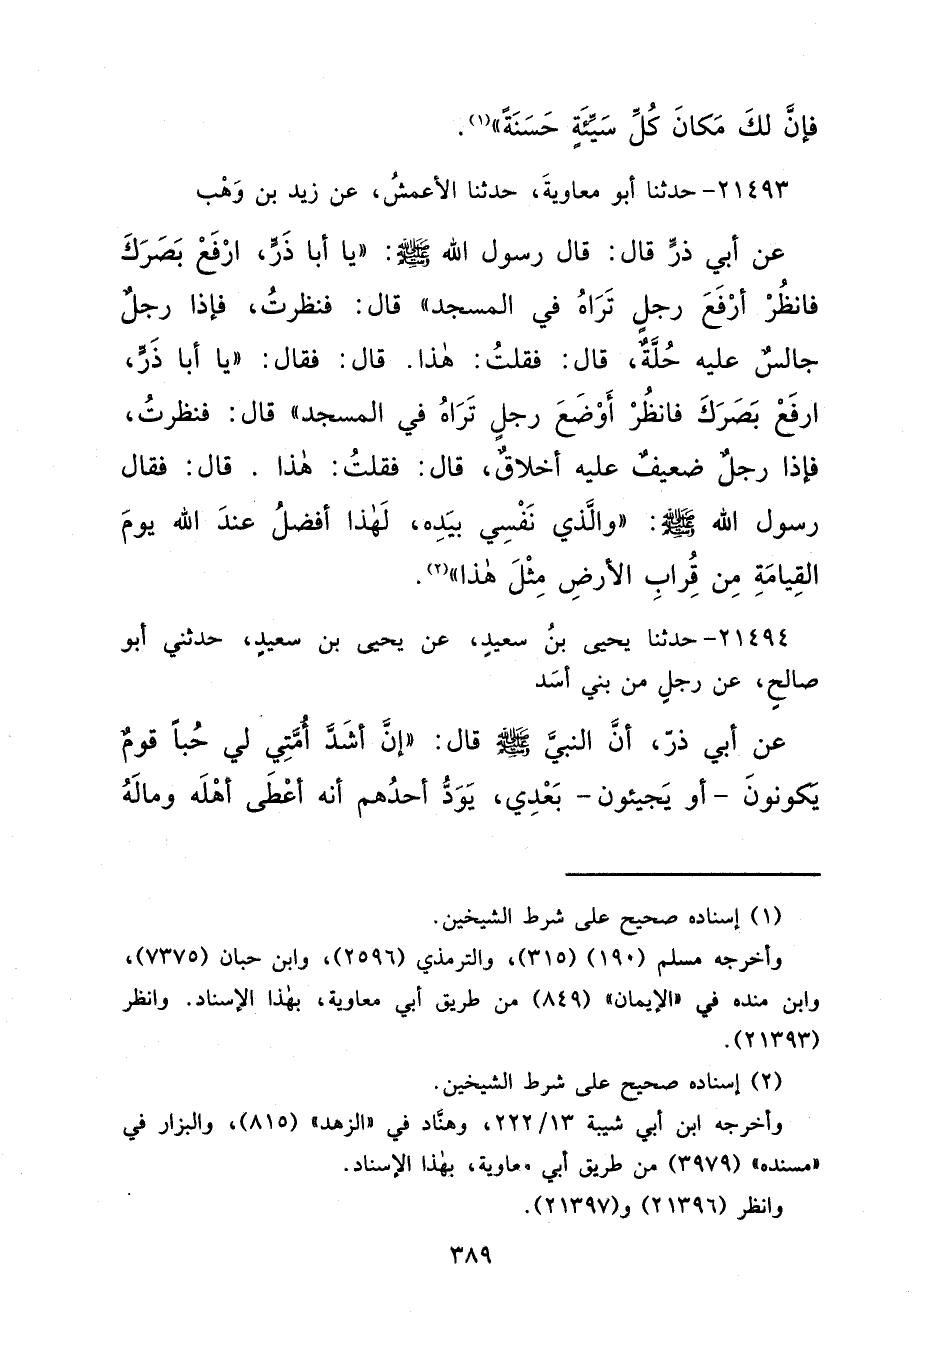 فإنَّ لكَ مَكانَ كُلِّ سَيِّئَةٍ حَسَنَةً»(١).
٢١٤٩٣- حدثنا أبو معاويةَ، حدثنا الأعمشُ، عن زيد بن وَهْب
عن أبي ذرٍّ قال: قال رسول الله ﷺ: «يا أبا ذَرٍّ، ارْفَعْ بَصَرَكَ
فانظُرْ أرْفَعَ رجلٍ تَرَاهُ في المسجد» قال: فنظرتُ، فإذا رجلٌ
جالسٌ عليه حُلَّةٌ، قال: فقلتُ: هٰذا. قال: فقال: «يا أبا ذَرٍّ،
ارفَعْ بَصَرَكَ فانظُرْ أَوْضَعَ رجلٍ تَرَاهُ في المسجد» قال: فنظرتُ،
فإذا رجلٌ ضعيفٌ عليه أخلاقٌ، قال: فقلتُ: هٰذا . قال: فقال
رسول الله ﷺ: «والَّذي نَفْسِي بيَدِه، لَهٰذا أفضلُ عندَ الله يومَ
القِيامَةِ مِن قُرابِ الأرضِ مِثْلَ هٰذا»(٢).
٢١٤٩٤- حدثنا يحيى بنُ سعيدٍ، عن يحيى بن سعيدٍ، حدثني أبو
صالحٍ، عن رجلٍ من بني أسَد
عن أبي ذرّ، أنَّ النبيَّ ﷺ قال: «إنَّ أشَدَّ أُمَّتِي لي حُباً قومٌ
يَكونونَ - أو يَجيئون- بَعْدِي، يَوَدُّ أحدُهم أنه أعْطَى أهْلَه ومالَهُ
(١) إسناده صحيح على شرط الشيخين.
وأخرجه مسلم (١٩٠) (٣١٥)، والترمذي (٢٥٩٦)، وابن حبان (٧٣٧٥)،
وابن منده في «الإيمان» (٨٤٩) من طريق أبي معاوية، بهٰذا الإسناد. وانظر
(٢١٣٩٣).
(٢) إسناده صحيح على شرط الشيخين.
وأخرجه ابن أبي شيبة ٢٢٢/١٣، وهنَّاد في «الزهد» (٨١٥)، والبزار في
«مسنده» (٣٩٧٩) من طريق أبي معاوية، بهٰذا الإسناد.
وانظر (٢١٣٩٦) و(٢١٣٩٧).
٣٨٩